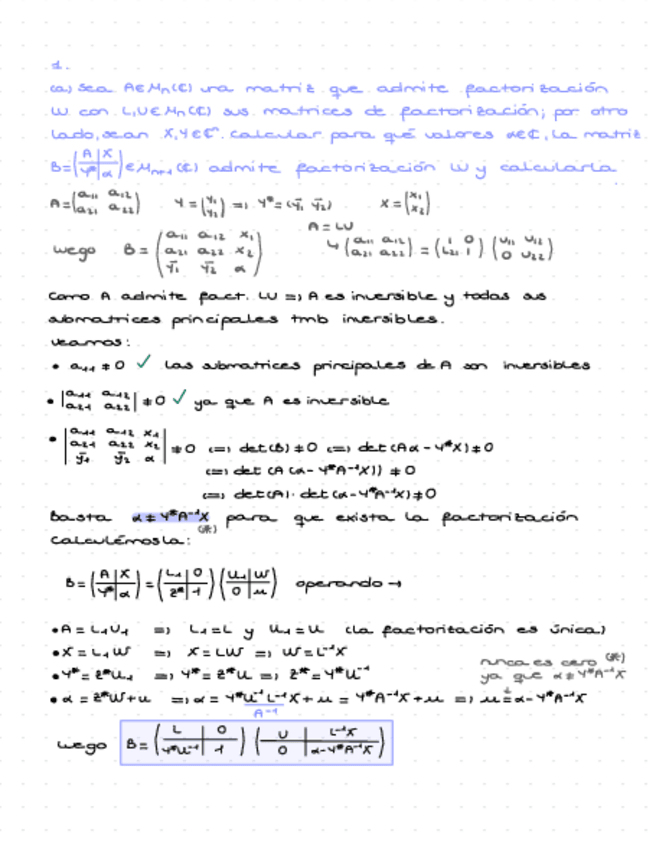 1.
(a) Sea A∈Mn(ℂ) una matriz que admite factorización
LU con L,U∈Mn(ℂ) sus matrices de factorización; por otro
lado, sean X,Y∈ℂⁿ. Calcular para qué valores α∈ℂ, la matriz
B=(A|X / Y*|α)∈Mn+1(ℂ) admite factorización LU y calcularla
A=(a11 a12 / a21 a22) Y=(y1 / y2) => Y*=(ȳ1 ȳ2) X=(x1 / x2)
A=LU
luego B=(a11 a12 x1 / a21 a22 x2 / ȳ1 ȳ2 α) ↳ (a11 a12 / a21 a22) = (1 0 / L21 1) (U11 U12 / 0 U22)
Como A admite fact. LU => A es inversible y todas sus
submatrices principales tmb inversibles.
Veamos:
• a11 ≠ 0 ✓ las submatrices principales de A son inversibles
• |a11 a12 / a21 a22| ≠ 0 ✓ ya que A es inversible
• |a11 a12 x1 / a21 a22 x2 / ȳ1 ȳ2 α| ≠ 0 <=> det(B) ≠ 0 <=> det(Aα - Y*X) ≠ 0
<=> det (A (α - Y*A⁻¹X)) ≠ 0
<=> det(A) · det(α - Y*A⁻¹X) ≠ 0
Basta α ≠ Y*A⁻¹X para que exista la factorización
(*)
Calculémosla:
B=(A|X / Y*|α) = (L1|0 / z*|1) (U1|W / 0|μ) operando →
• A = L1U1 => L1=L y U1=U (la factorización es única)
• X = L1W => X = LW => W=L⁻¹X
• Y* = z*U1 => Y* = z*U => z* = Y*U⁻¹
nunca es cero (*)
ya que α ≠ Y*A⁻¹X
• α = z*W+μ => α = Y*U⁻¹L⁻¹X + μ = Y*A⁻¹X + μ => μ = α - Y*A⁻¹X
A⁻¹
luego B = (L|0 / Y*U⁻¹|1) (U|L⁻¹X / 0|α-Y*A⁻¹X)